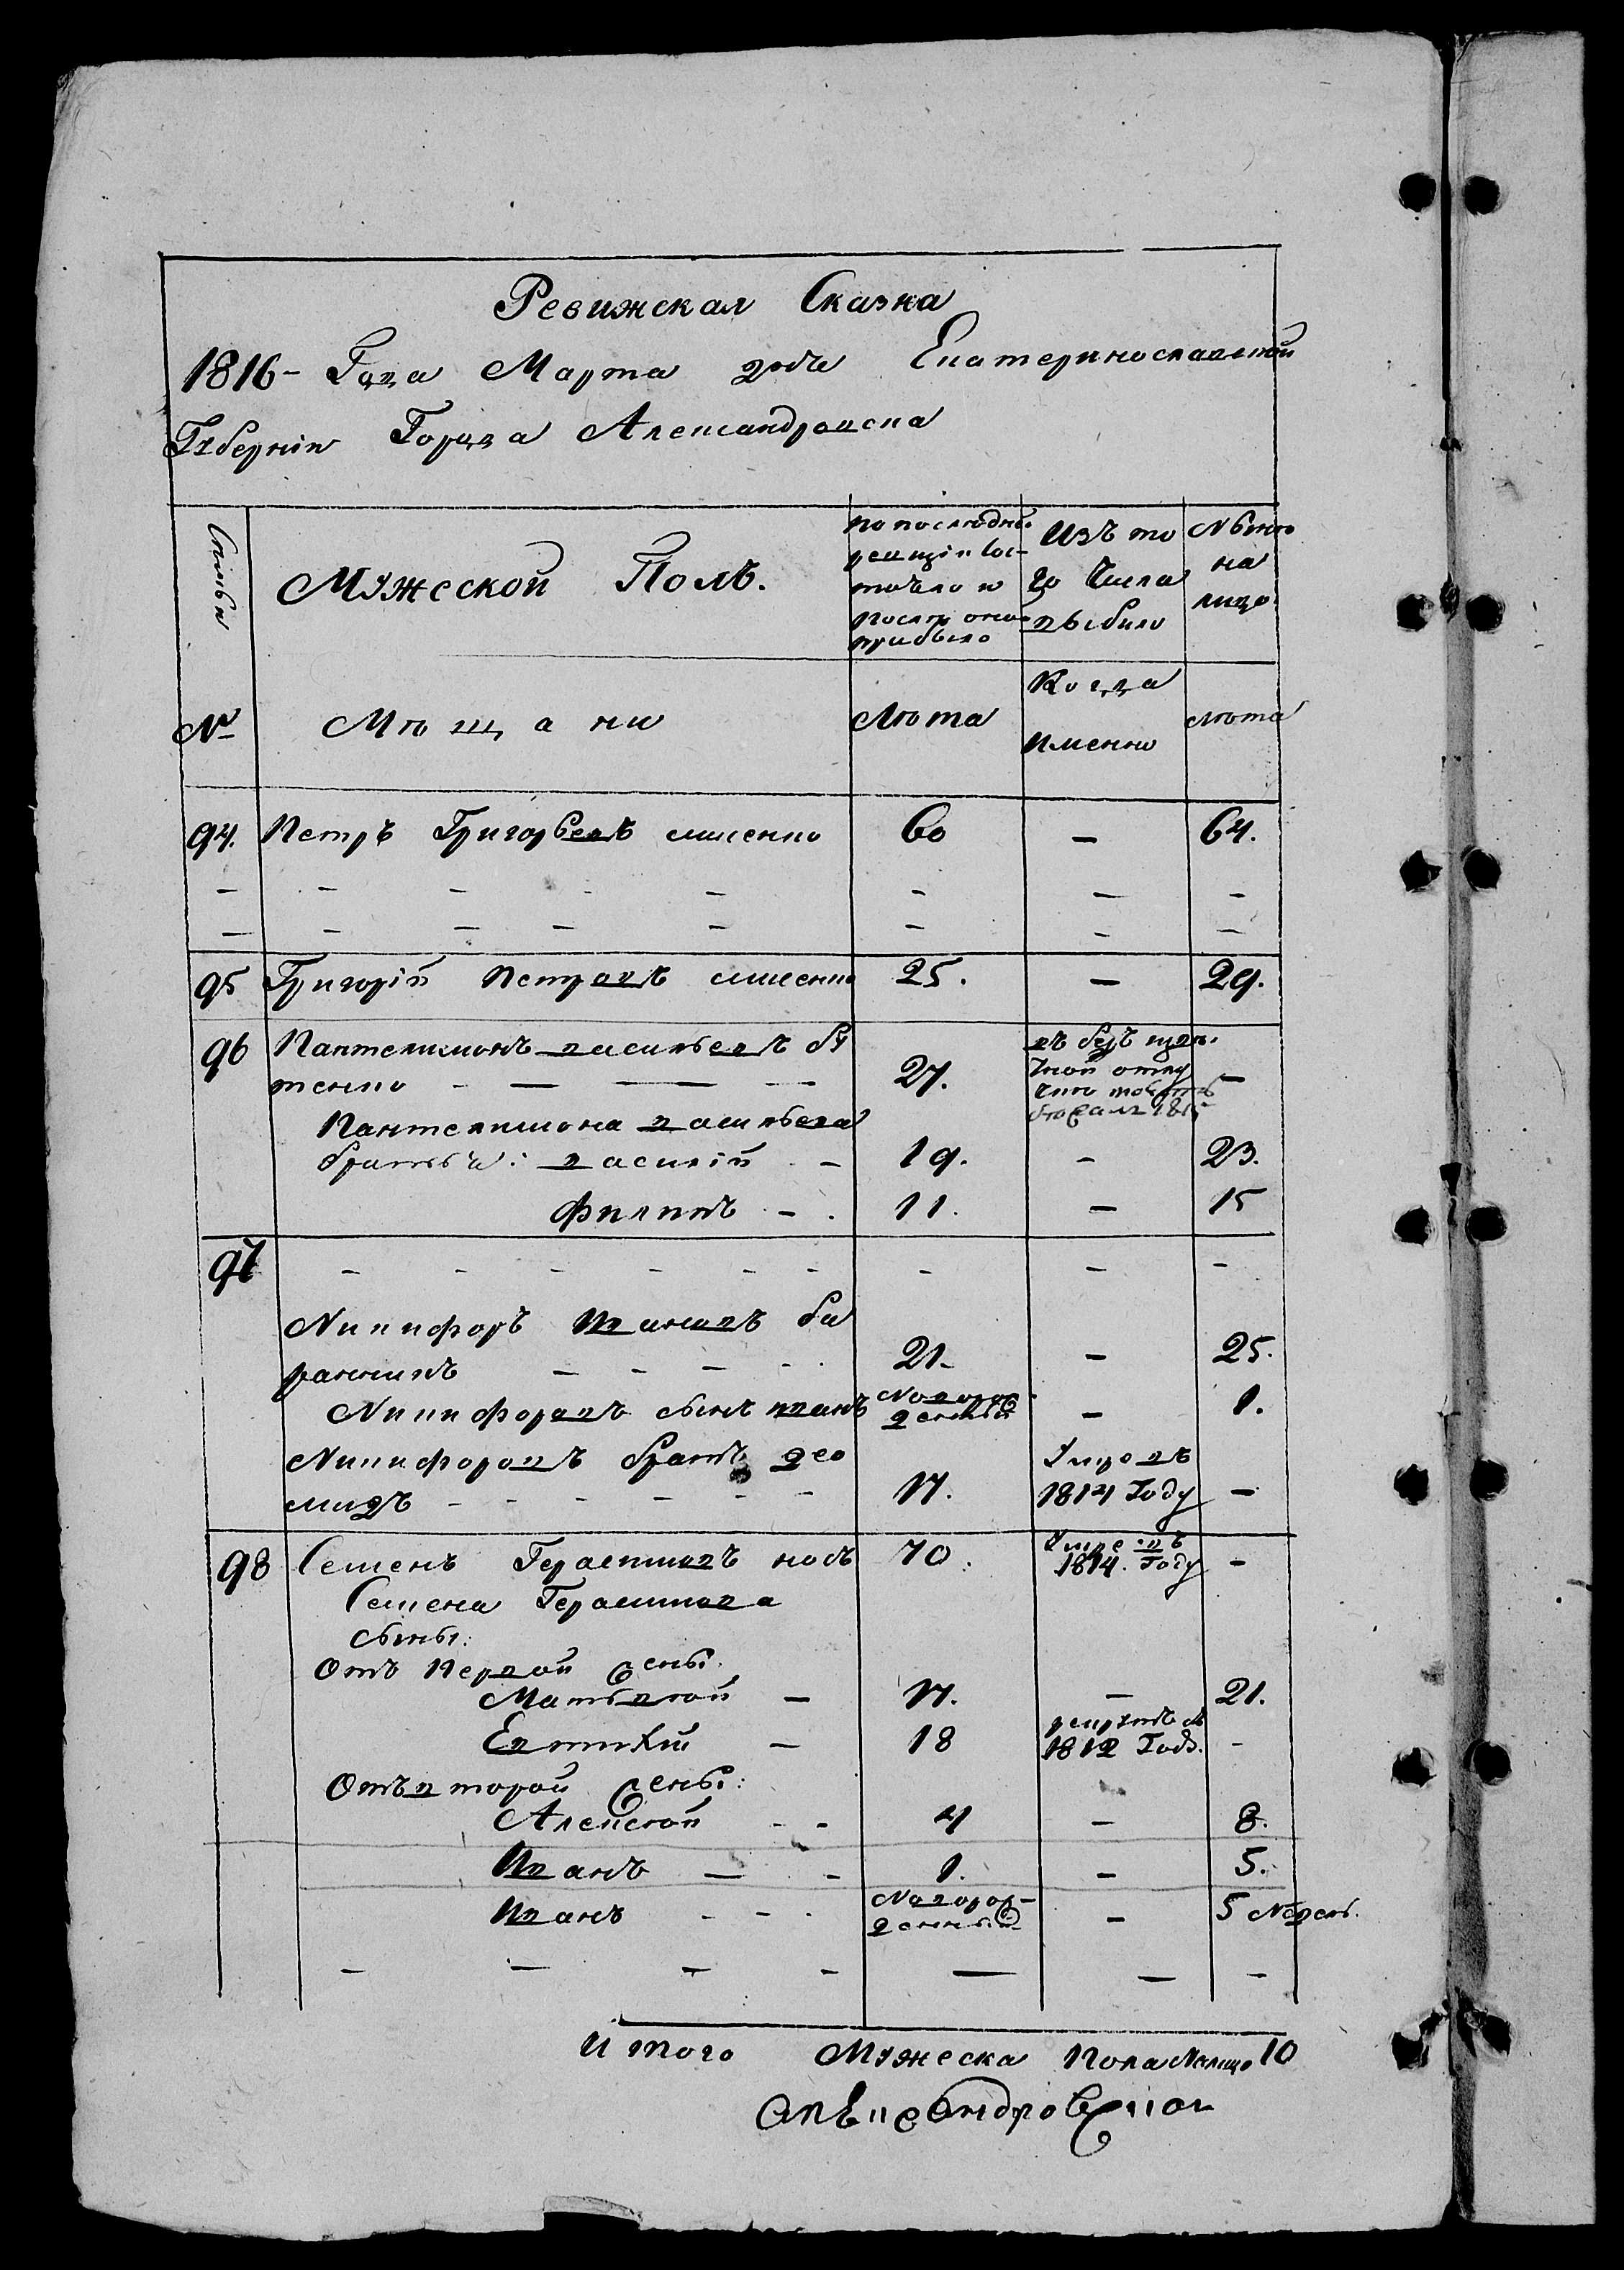 Ревижская Сказка
1816- Года Марта дня Екатеринославской
Губерніи Города Александровска
Мужеской Полъ.
по последней
ревизіи сос-
тояло и
после оной
прибыло
Изъ то
го Числа
выбило
Ныне
на
лицо
№
Мѣщани
Лѣта
Когда
именно
лѣта
94. Петръ Григорьевъ 60 — 64.
95 Григорій Петровъ 25. — 29.
96 Пантелимонъ васильевъ бу
тенко - — — — 27. —
Пантелимона васильева
братья: василій - 19. - 23.
Филипъ - . 11. — 15
97 - - - - - - - - -
Никифоръ Ивановъ ба
ранникъ - - - - 21. — 25.
Никифоровъ сынъ иванъ Новорож-
денный — 1.
Никифоровъ братъ део
мидъ - - - - - - 17. Умре въ
1814 Году —
98 Семенъ Герасимовъ 70. Умре въ
1814. Году -
Семена Герасимова
сыны:
Отъ Первой жены:
Матьвей — 17. — 21.
Евтихій — 18 1812 Году. -
Отъ второй жены:
Алексей - - 4 — 8.
Иванъ — - 1. — 5.
Иванъ - - . Новорож-
денный — 5 Недель.
Итого Мужеска Пола Налицо 10